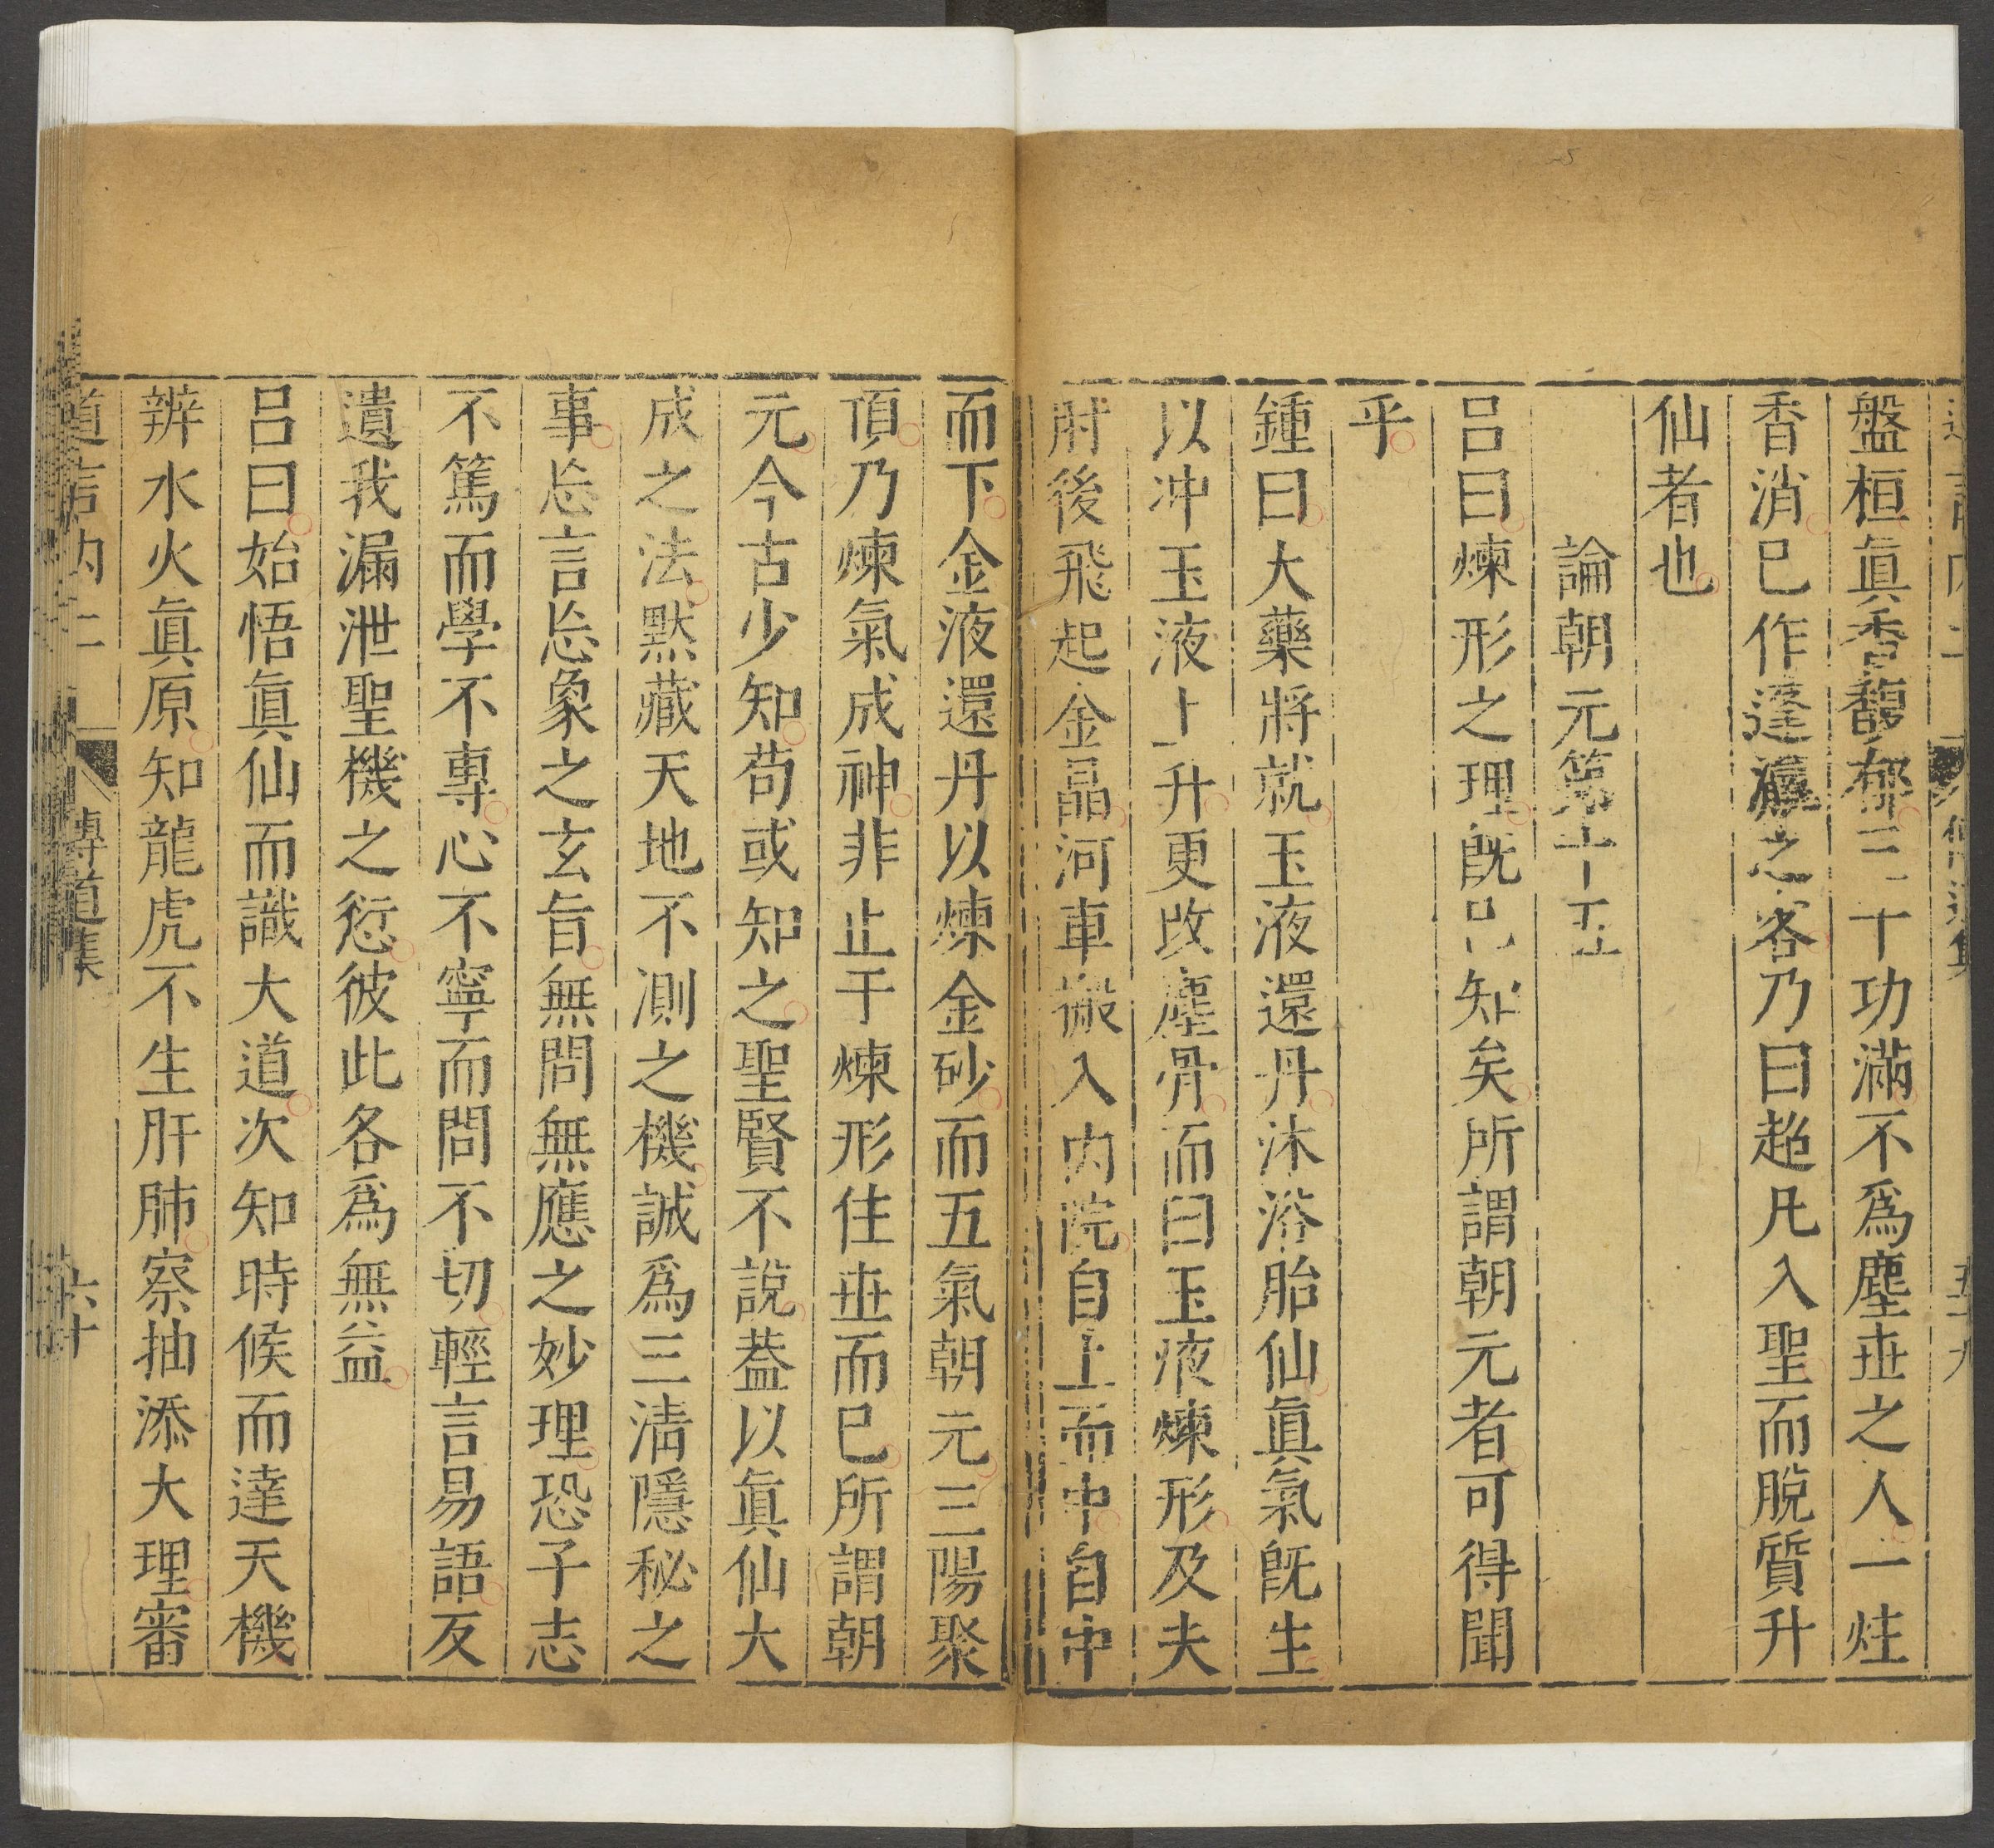 盤桓眞香馥郁三千功滿不爲塵世之人一炷
香消已作蓬瀛之客乃曰超凡入聖而脫質升
仙者也
論朝元第十五
呂曰煉形之理旣已知矣所謂朝元者可得聞
乎
鍾曰大藥將就玉液還丹沐浴胎仙眞氣旣生
以冲玉液上升更改塵骨而曰玉液煉形及夫
肘後飛起金晶河車搬入內院自上而中自中
而下金液還丹以煉金砂而五氣朝元三陽聚
頂乃煉氣成神非止于煉形住世而已所謂朝
元今古少知苟或知之聖賢不說葢以眞仙大
成之法默藏天地不測之機誠爲三淸隱秘之
事忘言忘象之玄旨無問無應之妙理恐子志
不篤而學不專心不寧而問不切輕言易語反
遺我漏泄聖機之愆彼此各爲無益
呂曰始悟眞仙而識大道次知時候而達天機
辨水火眞原知龍虎不生肝肺察抽添大理審
道言內二
傳道集
六十